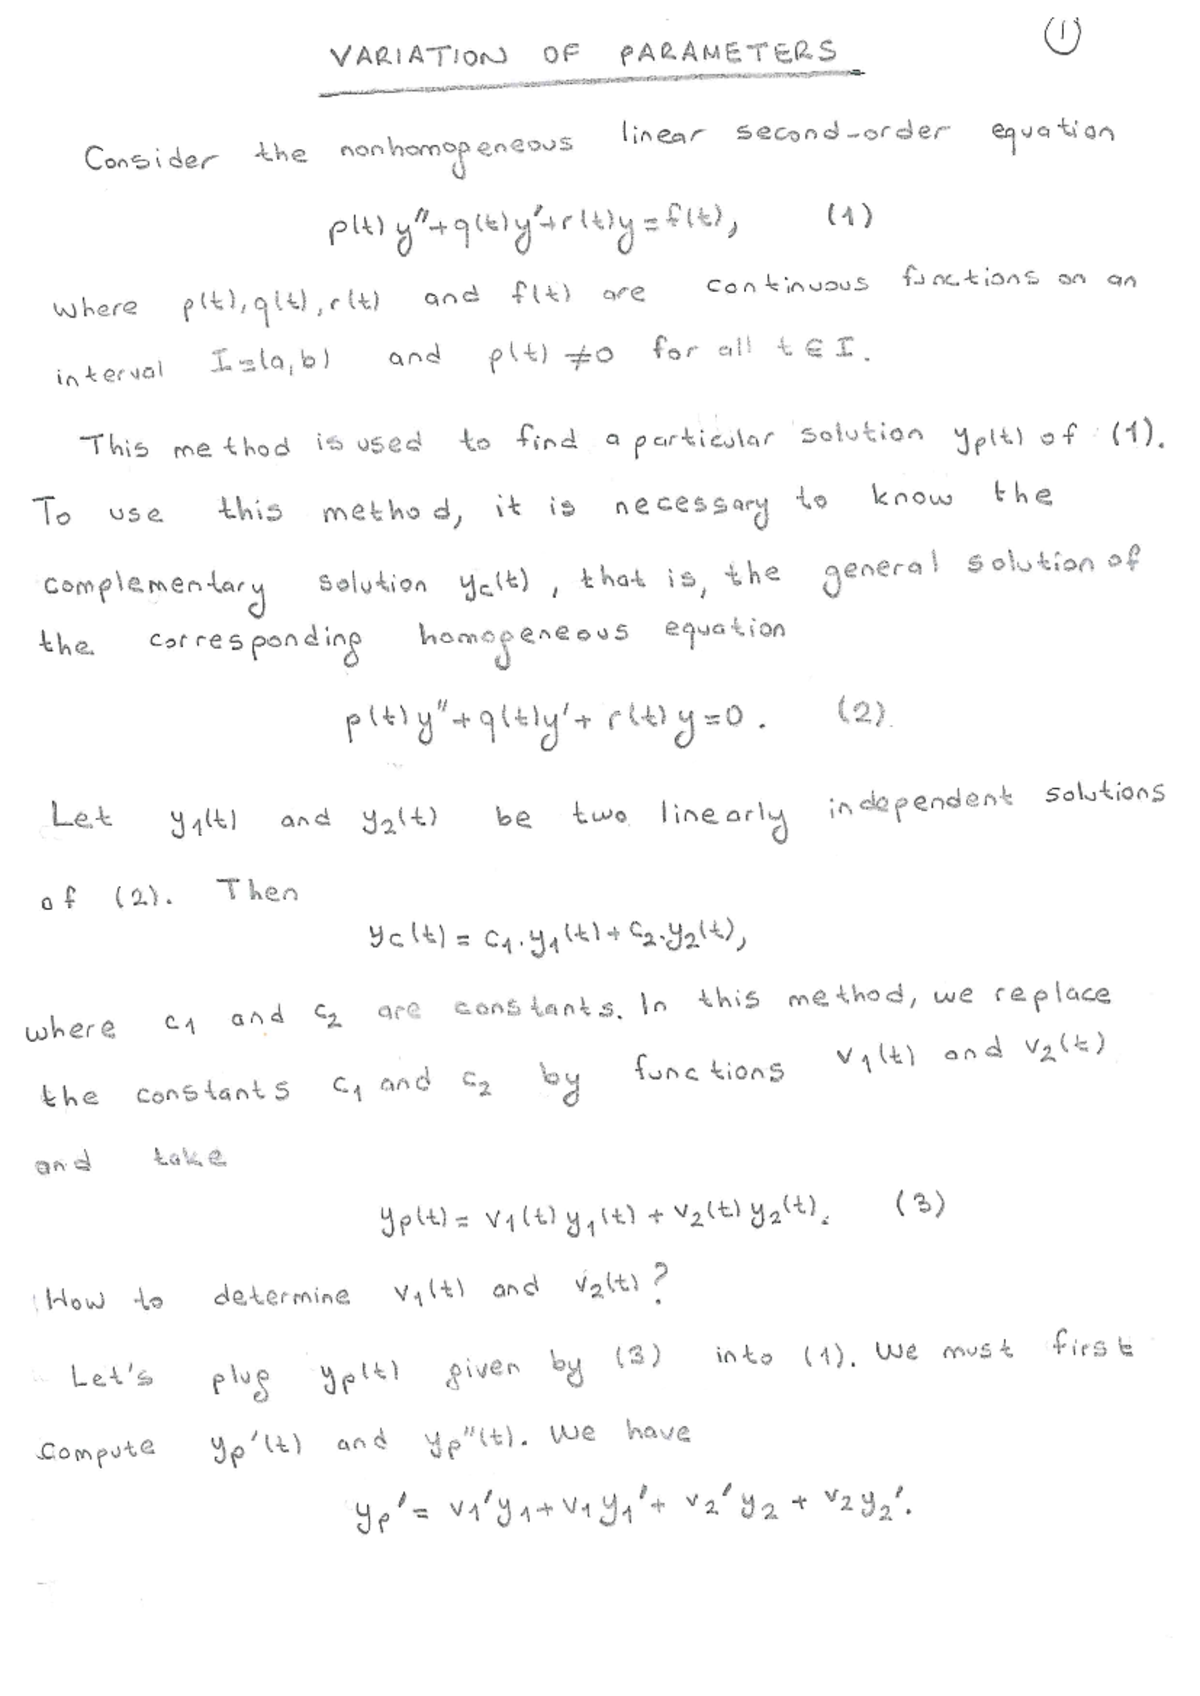 VARIATION OF PARAMETERS
①
Consider the nonhomogeneous linear second-order equation
p(t)y''+q(t)y'+r(t)y=f(t), (1)
where p(t), q(t), r(t) and f(t) are continuous functions on an
interval I=(a,b) and p(t) ≠0 for all t∈I.
This method is used to find a particular solution yp(t) of (1).
To use this method, it is necessary to know the
complementary solution yc(t), that is, the general solution of
the corresponding homogeneous equation
p(t)y''+q(t)y'+r(t)y=0. (2)
Let y1(t) and y2(t) be two linearly independent solutions
of (2). Then
yc(t) = c1.y1(t)+c2.y2(t),
where c1 and c2 are constants. In this method, we replace
the constants c1 and c2 by functions v1(t) and v2(t)
and take
yp(t) = v1(t)y1(t) + v2(t)y2(t). (3)
How to determine v1(t) and v2(t)?
Let's plug yp(t) given by (3) into (1). We must first
compute yp'(t) and yp''(t). We have
yp' = v1'y1+v1y1'+v2'y2+v2y2'.